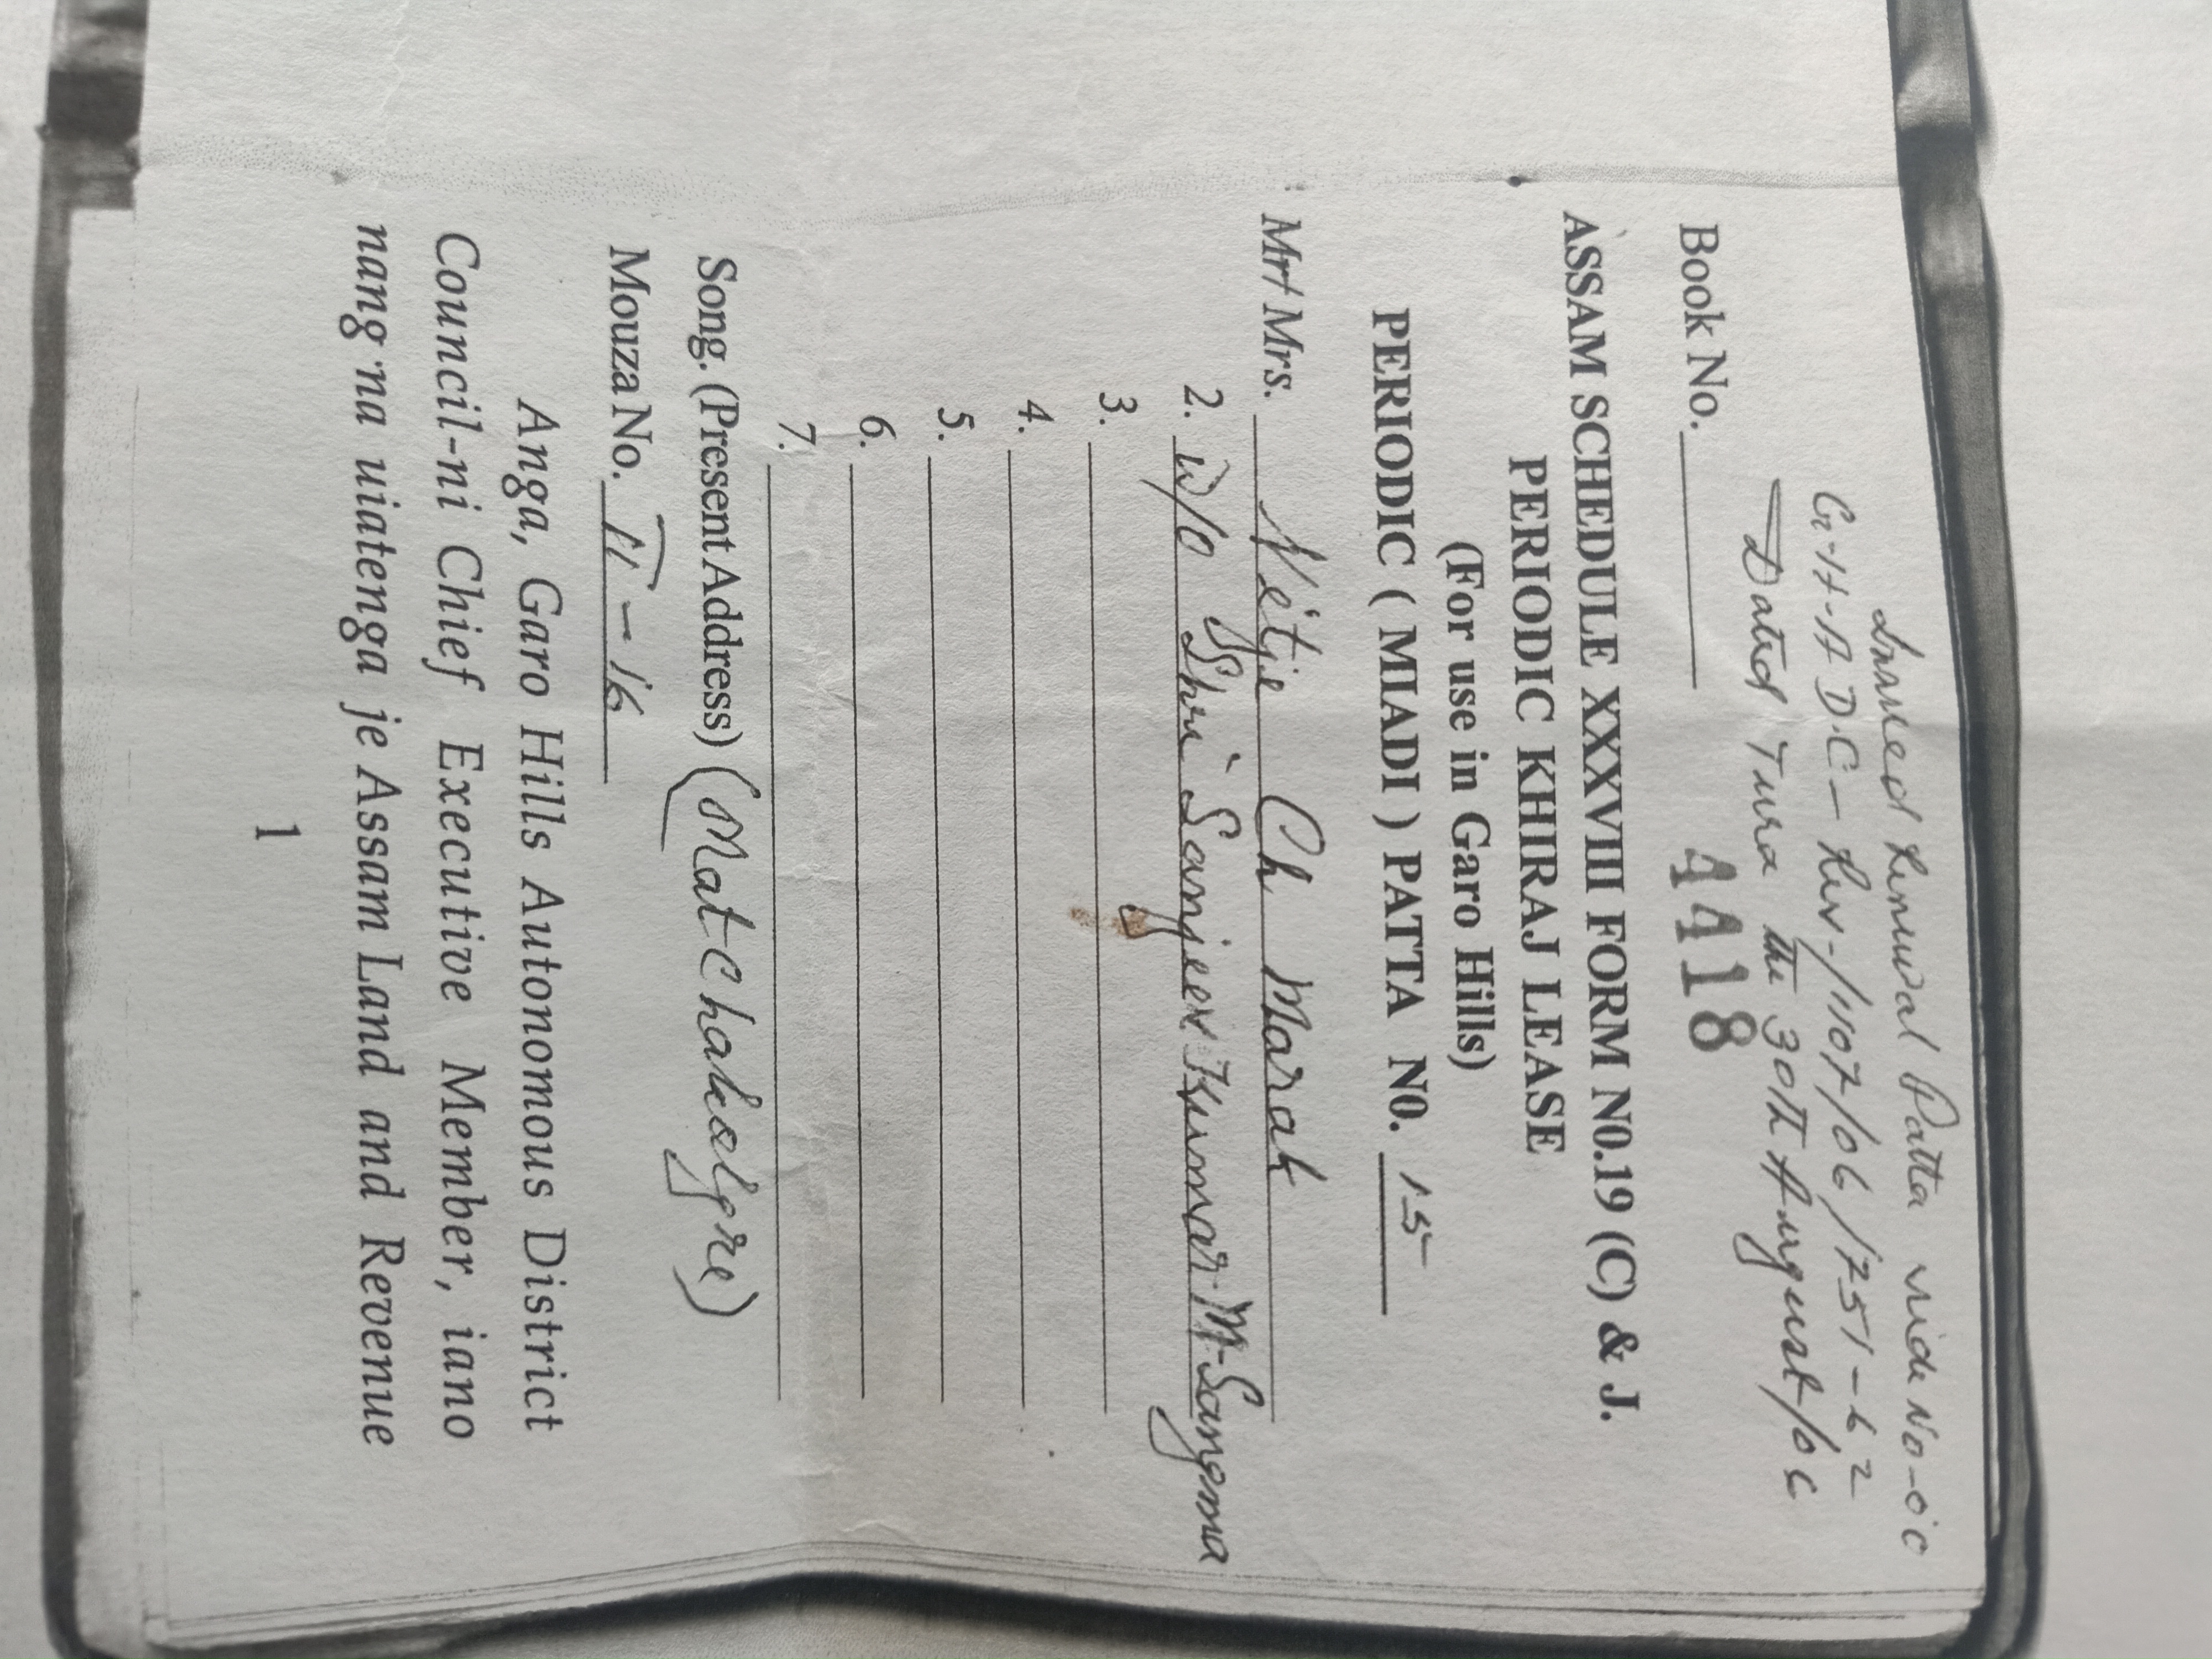 Issued Renewal Patta vide No-
G.H.A.D.C- Rev./1107/06/1751-62
Dated Tura the 30th August/06
Book No. 4418
ASSAM SCHEDULE XXXVIII FORM N0.19 (C) & J.
PERIODIC KHIRAJ LEASE
(For use in Garo Hills)
PERIODIC ( MIADI ) PATTA N0. 15
Mr/ Mrs. Ch Marak
2. W/o Shri Sanjeev Kumar M. Sangma
3.
4.
5.
6.
7.
Song. (Present Address) (Matchakolgre)
Mouza No. II - 16
Anga, Garo Hills Autonomous District
Council-ni Chief Executive Member, iano
nang'na uiatenga je Assam Land and Revenue
1